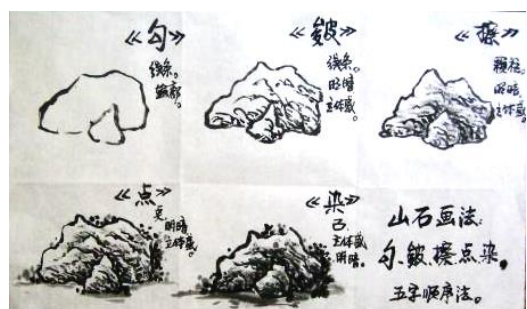 《勾》
线条。
轮廓。
《皴》
线条。
明暗
立体感。
《擦》
明暗
立体感。
《点》
明暗
立体感
《染》
立体感
明暗。
山石画法:
勾、皴、擦、点、染，
五字顺序法。